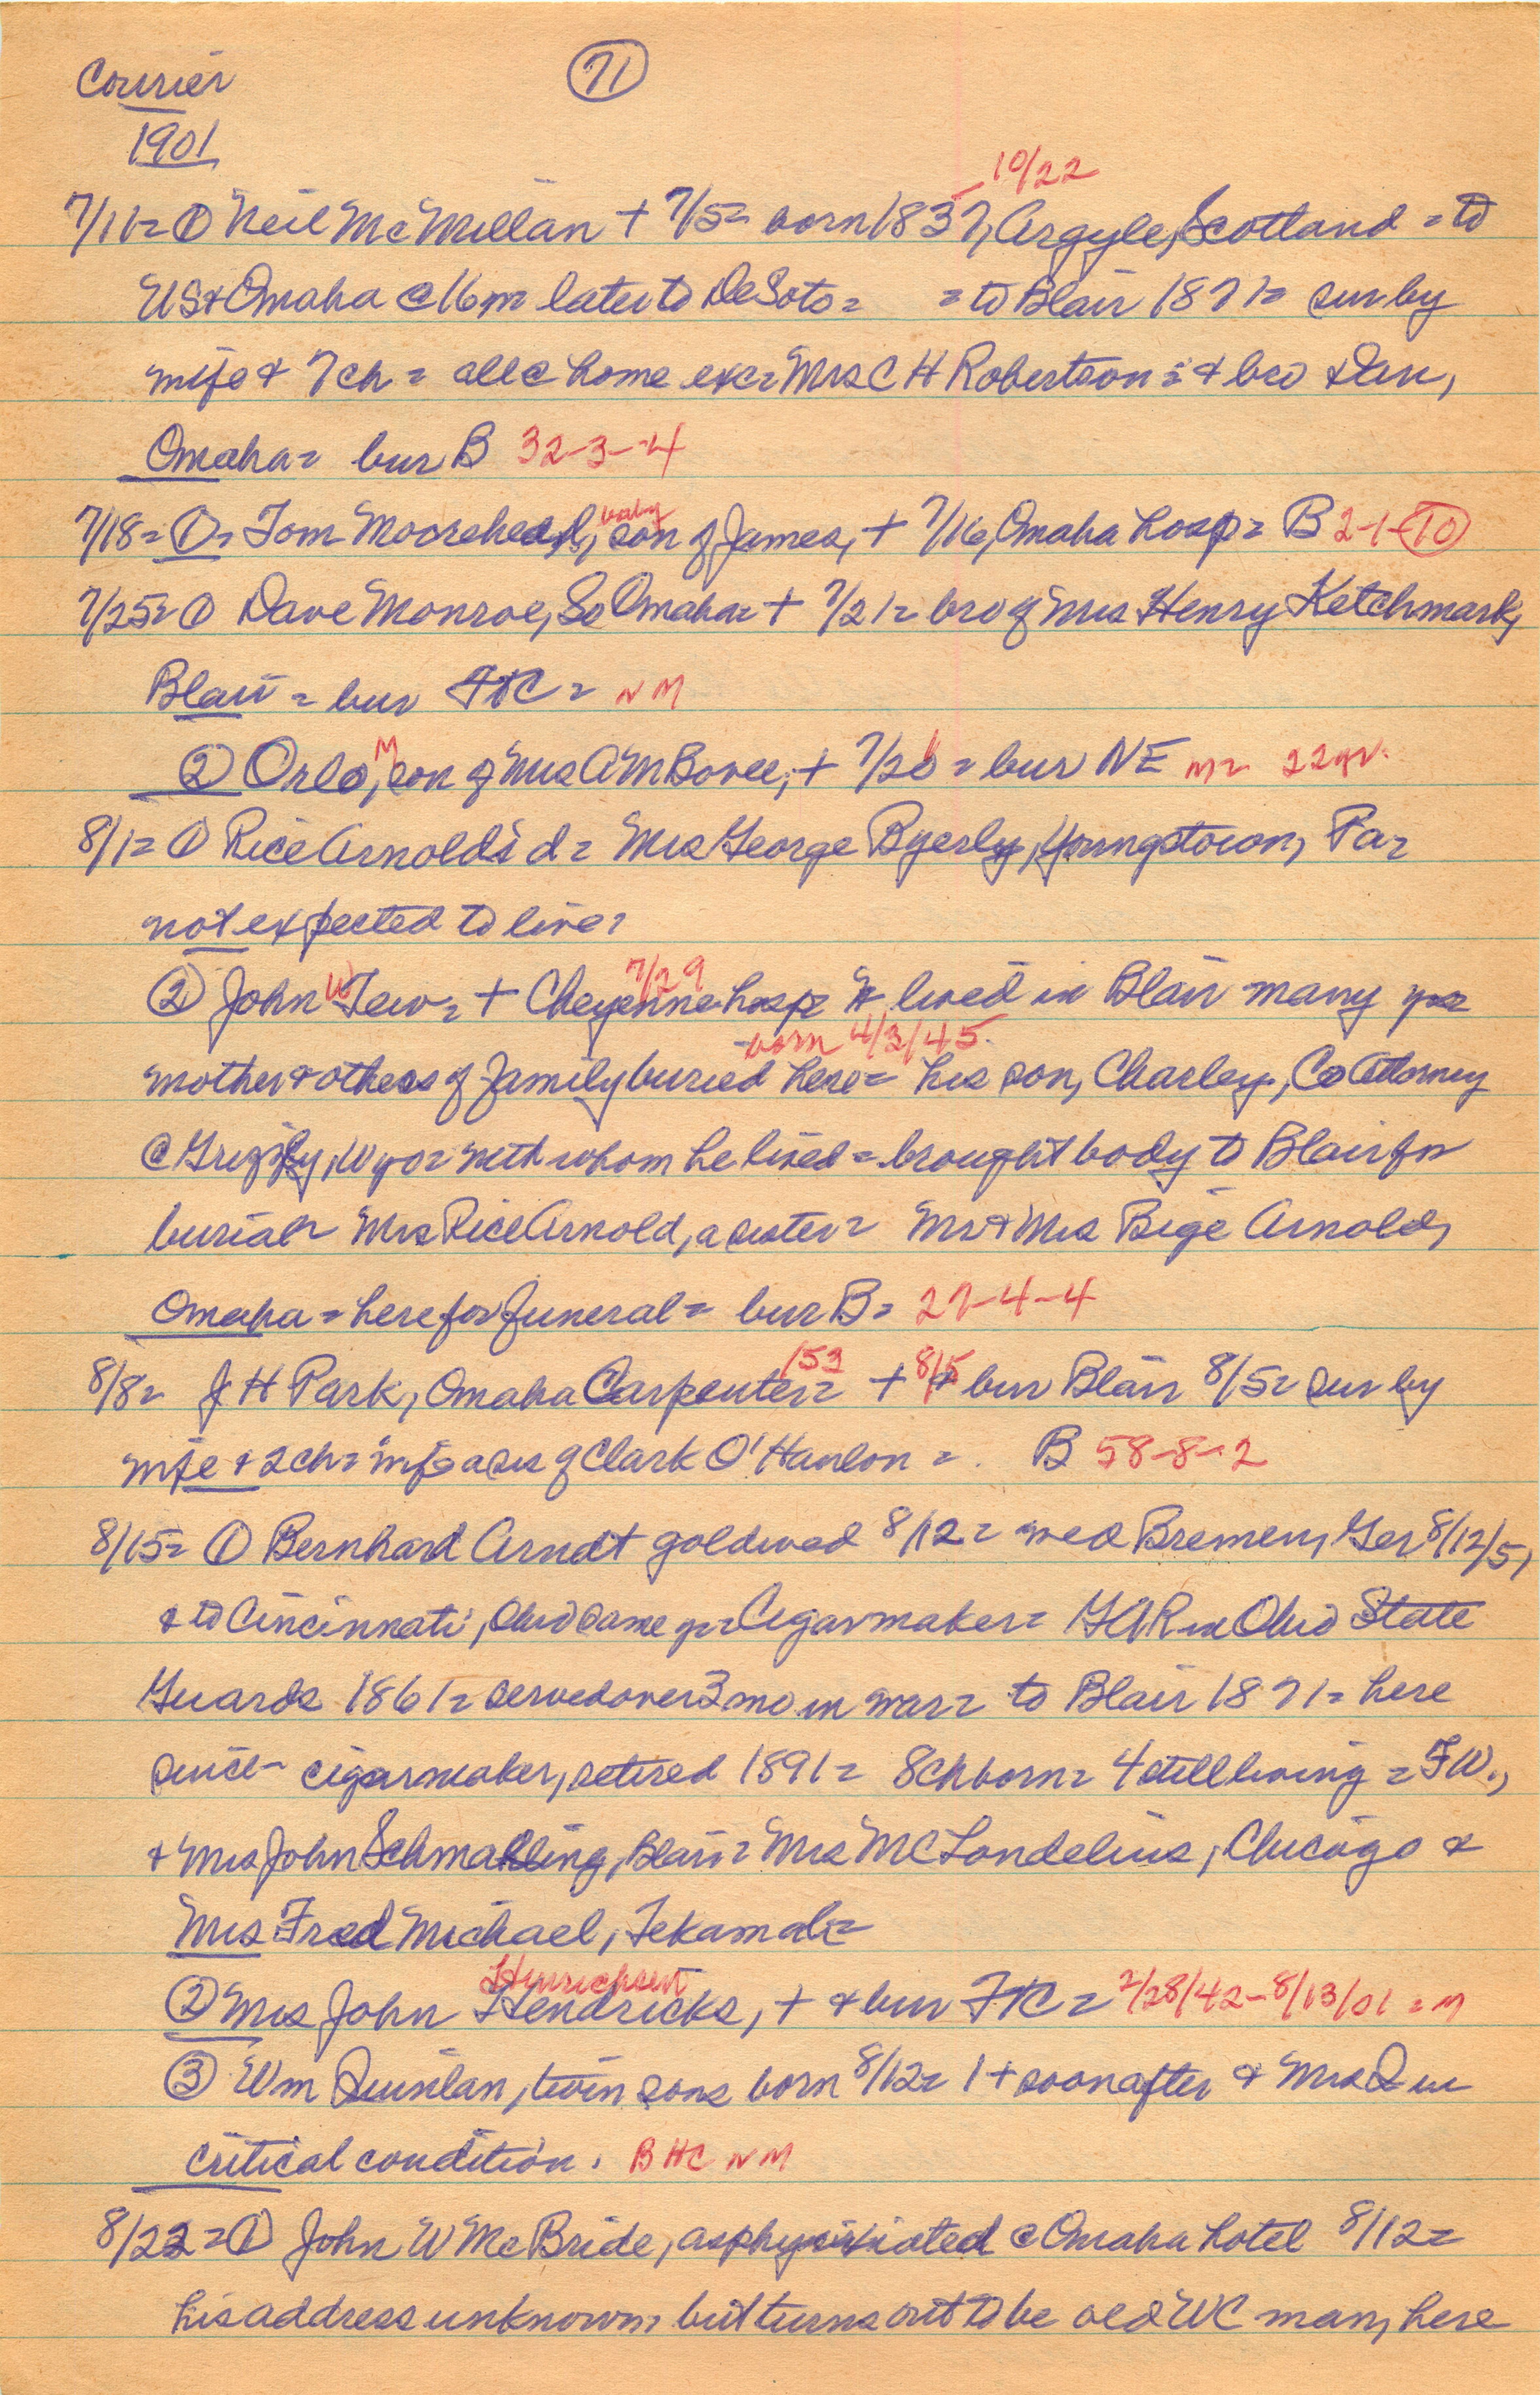 Courier 71
1901
10/22
7/11= ① Neil McMillan + 7/5= born 1837, Argyle, Scotland = to
US & Omaha @ 16 m= later to DeSoto = = to Blair 1871= sur by
wife & 7 ch = all @ home exc= Mrs C H Robertson = & bro Dan,
Omaha= bur B 32-3-4
baby
7/18= ①= Tom Moorehead, son of James, + 7/16, Omaha hosp= B 2-1-10
7/25= ① Dave Monroe, So Omaha= + 7/21= bro of Mrs Henry Ketchmark,
Blair = bur FTC = NM
② Orlo, M son of Mrs A M Bovee, + 7/26 = bur NE m= 22 yr.
8/1= ① Rice Arnold's d = Mrs George Byerly, Youngstown, Pa=
not expected to live=
7/29
② John W Tew= + Cheyenne hosp= lived in Blair many yrs=
born 4/3/45
mother & others of family buried here= his son, Charley, Co Attorney
@ Grizzly, Wyo= with whom he lived = brought body to Blair for
burial= Mrs Rice Arnold, a sister= Mr & Mrs Bige Arnold,
Omaha = here for funeral = bur B= 27-4-4
153 8/5
8/8= J H Park, Omaha Carpenter= + & bur Blair 8/5= sur by
wife & 2 ch= wife a sis of Clark O'Hanlon = . B 58-8-2
8/15= ① Bernhard Arndt gold wed 8/12= wed Bremen, Ger 8/12/51
& to Cincinnati, Ohio same yr= Cigarmaker= GAR in Ohio State
Guards 1861= served over 3 mo in war= to Blair 1871= here
since= cigarmaker, retired 1891= 8 ch born= 4 still living = F W.,
& Mrs John Schmahling, Blair= Mrs M C Londelius, Chicago &
Mrs Fred Michael, Tekamah=
Hinrichsen
② Mrs John Hendricks, + & bur FTC = 2/28/42-8/13/01 = M
③ Wm Quinlan, twin sons born 8/12= 1 + soon after & Mrs Q in
critical condition. BHC NM
8/22 = ① John W McBride, asphyxiated @ Omaha hotel 8/12=
his address unknown, but turns out to be old WC man, here